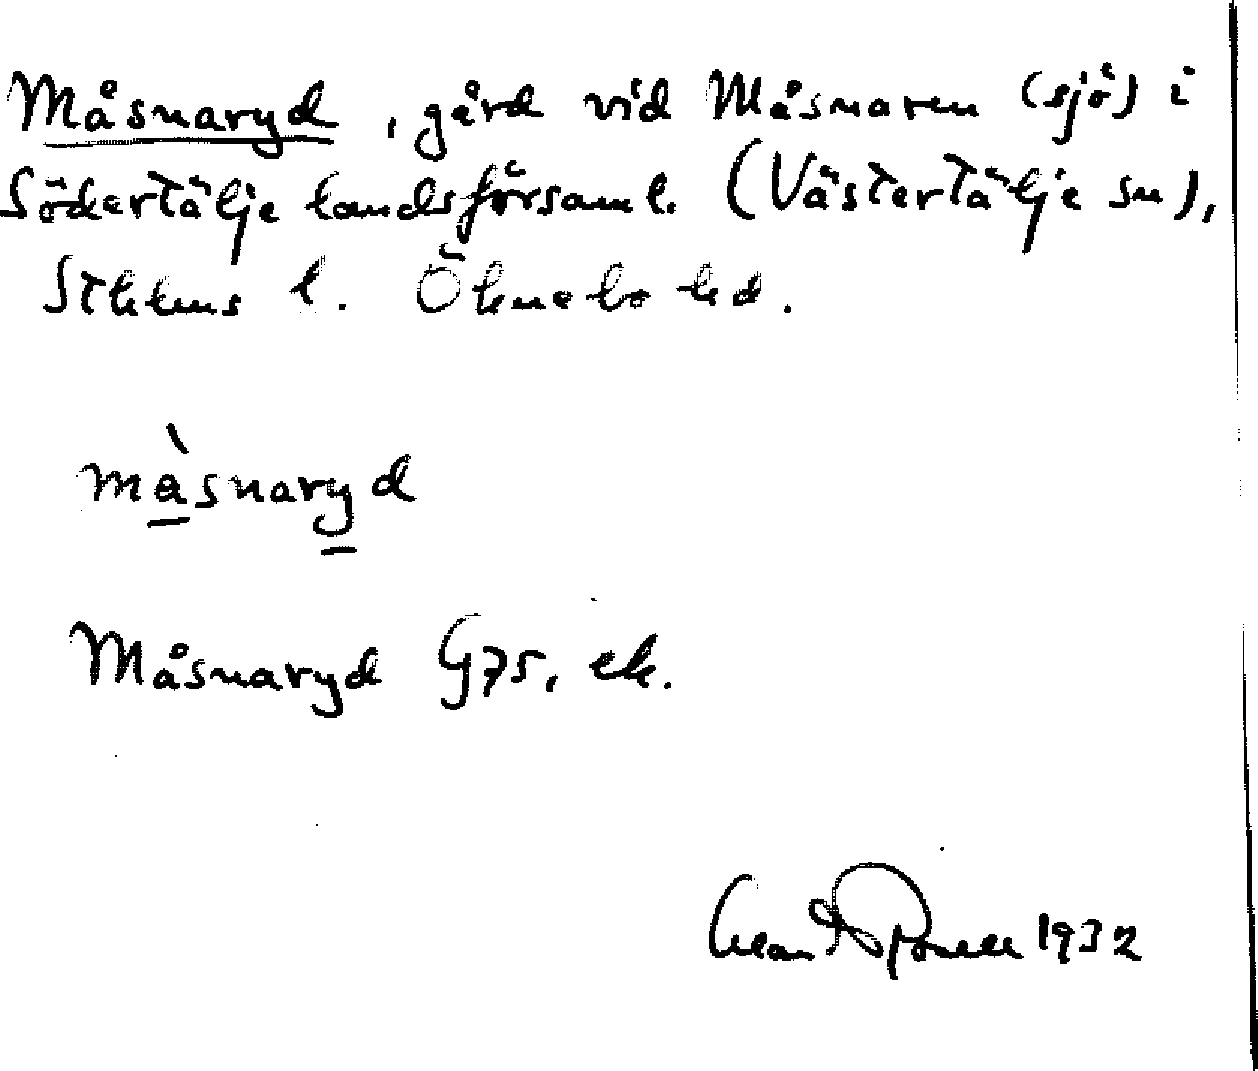 Måsnaryd, gård vid Måsnaren (sjö) i
Södertälje landsförsaml. (Västertälje sn),
Sthlms l. Öknebo hd.
måsnaryd
Måsnaryd G75, ek.
1932